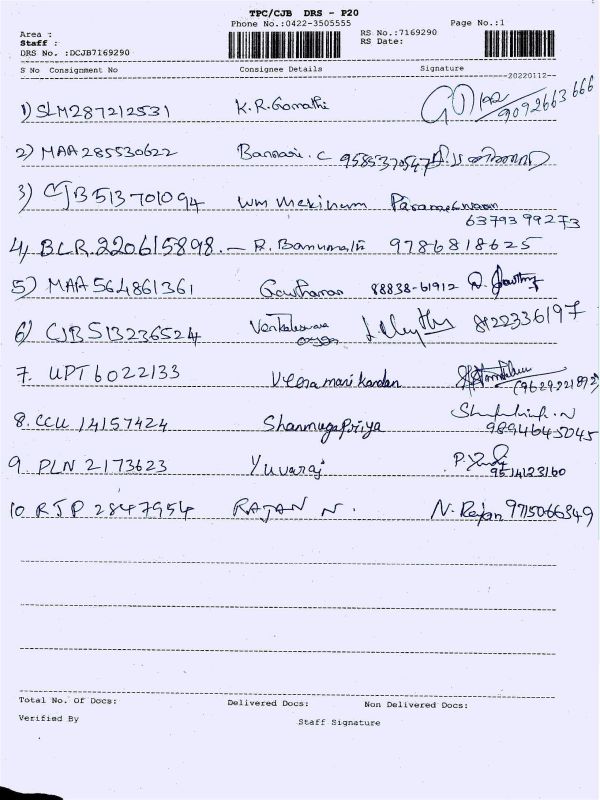 TPC/CJB DRS - P20
Phone No.:0422-3505555 Page No.:1
Area :
Staff :
RS No.:7169290
RS Date:
DRS No. :DCJB7169290
S No Consignment No Consignee Details Signature
20220112
1) SLM287212531 K.R.Gomathi 9092663666
2) MAA 285530622 Bannari. C 9585370547
3) CJB 513701094 Wm Mekinum Parameswaran
63793 99273
4) BLR 220615898. – R. Banumathi 9786818625
5) MAA 564861361 Gowthaman 88838-61912
6) CJB 513236524 Venkateswara 8122336197
oxygen
7. UPT 6022133 Veeramanikandan (9629221892)
8. CCU 14157424 Shanmugapriya
9894645045
9. PLN 2173623 Yuvaraj
9514123160
10 RJP 2847954 RAJAN N. N. Rajan 9715066349
Total No. Of Docs: Delivered Docs: Non Delivered Docs:
Verified By Staff Signature